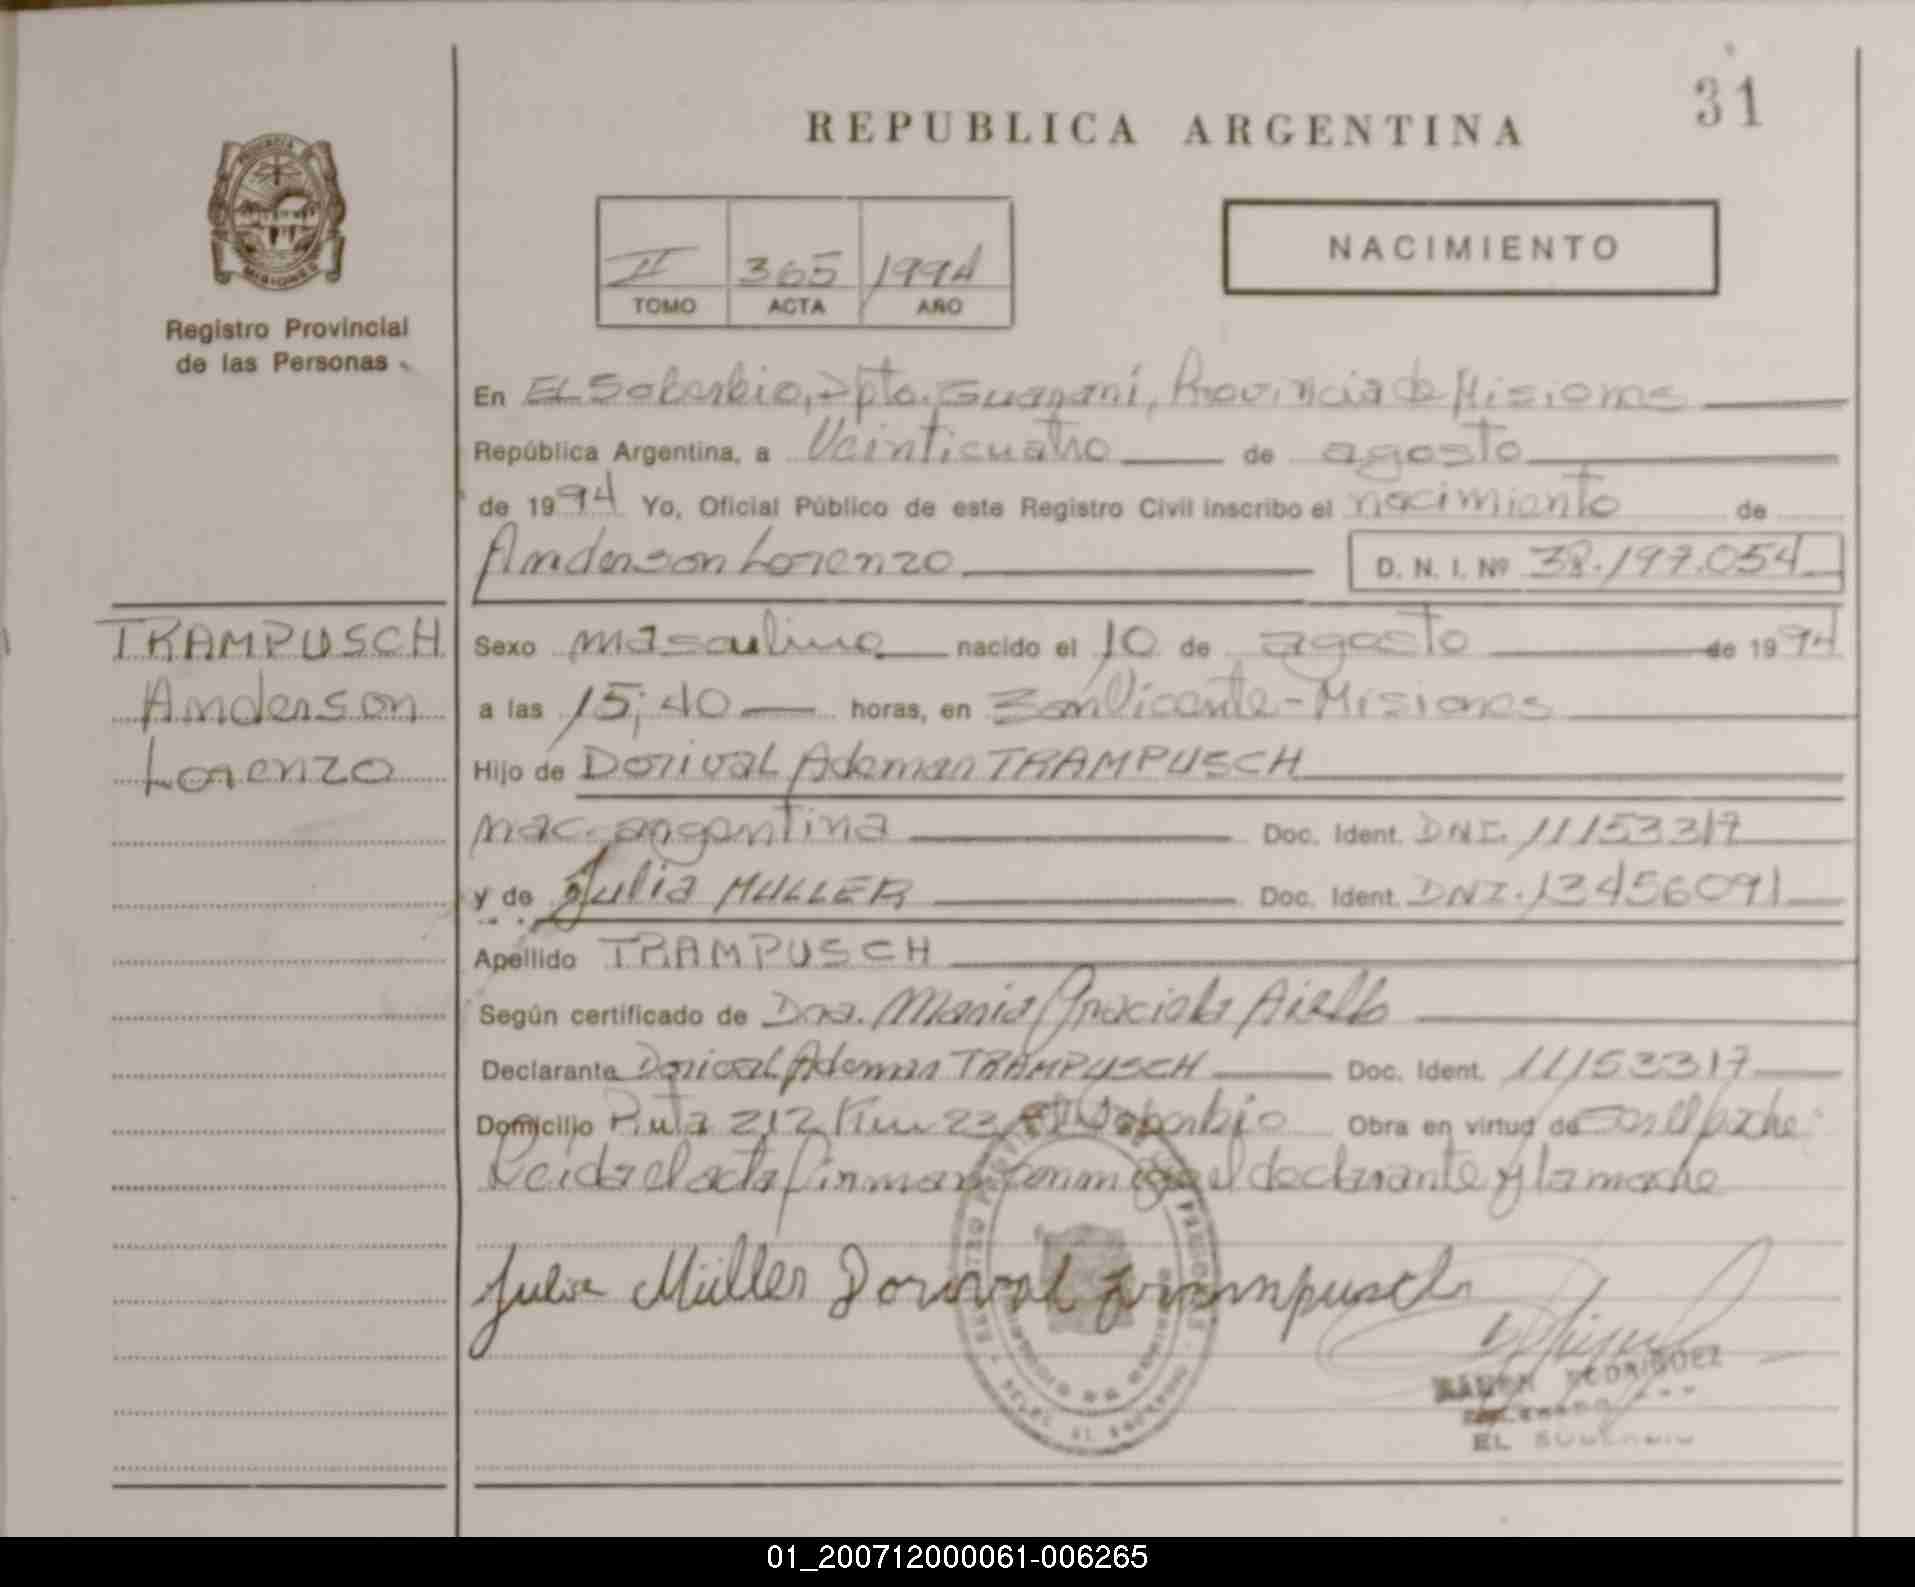 31
REPUBLICA ARGENTINA
NACIMIENTO
II 365 1994
TOMO ACTA AÑO
Registro Provincial
de las Personas
En El Soberbio, Dpto. Guaraní, Provincia de Misiones
República Argentina, a Veinticuatro de agosto
de 1994 Yo, Oficial Público de este Registro Civil inscribo el nacimiento de
Anderson Lorenzo D. N. I. Nº 38.197.054
TRAMPUSCH
Anderson
Lorenzo
Sexo masculino nacido el 10 de agosto de 1994
a las 15:40 horas, en San Vicente - Misiones
Hijo de Dorival Ademar TRAMPUSCH
nac. argentina Doc. Ident. DNI. 11153317
y de Julia MULLER Doc. Ident. DNI. 13456091
Apellido TRAMPUSCH
Según certificado de Dra. Maria Graciela Aiello
Declarante Dorival Ademar TRAMPUSCH Doc. Ident. 11153317
Domicilio Ruta 212 Km 23 El Soberbio Obra en virtud de ser el padre.
Leida el acta firman conmigo el declarante y la madre
Julia Müller Dorival Trampusch
RAMON RODRIGUEZ
EL SOBERBIO
01_200712000061-006265